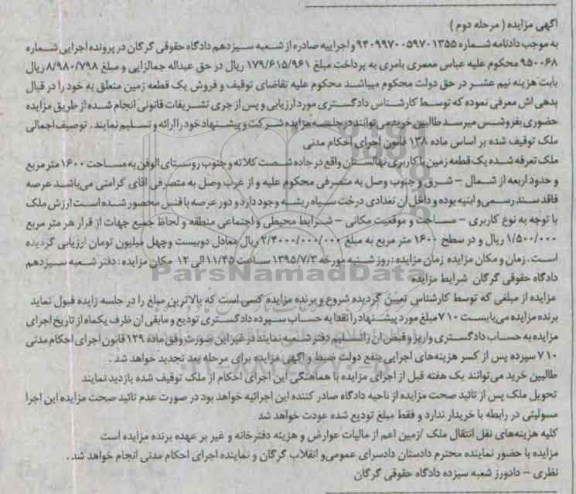 آگهی مزایده ( مرحله دوم )
به موجب دادنامه شماره ۹۴۰۹۹۷۰۰۵۹۷۰۱۳۵۵ و اجراییه صادره از شعبه سیزدهم دادگاه حقوقی گرگان در پرونده اجرایی شماره
۹۵۰۰۶۸ محکوم علیه عباس معمری بامری به پرداخت مبلغ ۱۷۹/۶۱۵/۹۶۱ ریال در حق عبداله جمالزایی و مبلغ ۸/۹۸۰/۷۹۸ ریال
بابت هزینه نیم عشر در حق دولت محکوم میباشند محکوم علیه تقاضای توقیف و فروش یک قطعه زمین متعلق به خود را در قبال
بدهی اش معرفی نموده که توسط کارشناس دادگستری مورد ارزیابی و پس از جری تشریفات قانونی انجام شده از طریق مزایده
حضوری بفروشس میرسد طالبین خرید می توانند در جلسه مزایده شرکت و پیشنهاد خود را ارائه و تسلیم نمایند . توصیف اجمالی
ملک توقیف شده بر اساس ماده ۱۳۸ قانون اجرای احکام مدنی
ملک تعرفه شده یک قطعه زمین با کاربری نهالستان واقع در جاده شصت کلاته و جنوب روستای الوفن به مساحت ۱۶۰۰ متر مربع
و حدود اربعه از شمال – شرق و جنوب وصل به متصرفی محکوم علیه و از غرب وصل به متصرفی اقای گرامتی می‌باشد عرصه
فاقد سند رسمی و ابنیه بوده و داخل آن تعدادی درخت سیاه ریشه وجود دارد و دور عرصه با فنس محصور شده است ارزش ملک
با توجه به نوع کاربری – مساحت و موقعیت مکانی – شرایط محیطی و اجتماعی منطقه و لحاظ جمیع جهات از قرار هر متر مربع
۱/۵۰۰/۰۰۰ ریال و در سطح ۱۶۰۰ متر مربع به مبلغ ۲/۴۰۰۰/۰۰۰/۰۰۰ ریال معادل دویست وچهل میلیون تومان ارزیابی گردیده
است . زمان و مکان مزایده زمان مزایده : روز شنبه مورخه ۱۳۹۵/۷/۳ ساعت ۱۱/۴۵ الی ۱۲ مکان مزایده : دفتر شعبه سیزدهم
دادگاه حقوقی گرگان شرایط مزایده
مزایده از مبلغی که توسط کارشناس تعیین گردیده شروع و برنده مزایده کسی است که بالاترین مبلغ را در جلسه زایده قبول نماید
برنده مزایده می‌بایست ۷۱۰ مبلغ مورد پیشنهاد را نقدا به حساب سپرده دادگستری تودیع و مابقی ان ظرف یکماه از تاریخ اجرای
مزایده به حساب دادگستری واریز و قبض ان را تسلیم دفتر شعبه نمایند در غیر این صورت وفق ماده ۱۲۹ قانون اجرای احکام مدنی
۷۱۰ سپرده پس از کسر هزینه‌های اجرایی بنفع دولت ضبط و اگهی مزایده برای مرحله بعد تجدید خواهد شد .
طالبین خرید می توانند یک هفته قبل از اجرای مزایده با هماهنگی این اجرای احکام از ملک توقیف شده بازدید نمایند
تحویل ملک پس از تائید صحت مزایده از ناحیه دادگاه صادر کننده این اجرائیه خواهد بود در صورت عدم تائید صحت مزایده این اجرا
مسولیتی در رابطه با خریدار ندارد و فقط مبلغ تودیع شده عودت خواهد شد
کلیه هزینه‌های نقل انتقال ملک /زمین اعم از مالیات عوارض و هزینه دفترخانه و غیر بر عهده برنده مزایده است
مزایده با حضور نماینده محترم دادستان دادسرای عمومی و انقلاب گرگان و نماینده اجرای احکام مدنی انجام خواهد شد .
نظری – دادورز شعبه سیزده دادگاه حقوقی گرگان
ParsNamadData